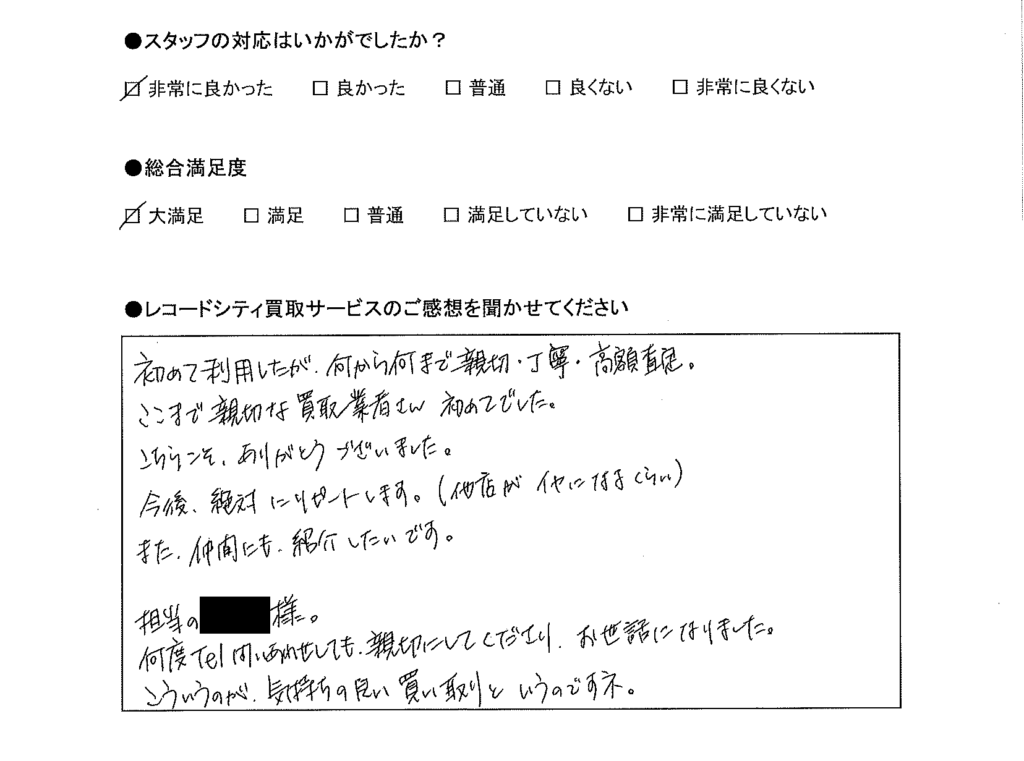 ●スタッフの対応はいかがでしたか？
☑ 非常に良かった □ 良かった □ 普通 □ 良くない □ 非常に良くない
●総合満足度
☑ 大満足 □ 満足 □ 普通 □ 満足していない □ 非常に満足していない
●レコードシティ買取サービスのご感想を聞かせてください
初めて利用したが、何から何まで親切・丁寧・高額査定。
ここまで親切な買取業者さん 初めてでした。
こちらこそ、ありがとうございました。
今後、絶対にリピートします。(他店がイヤになるくらい)
また、仲間にも、紹介したいです。
担当の 様。
何度Tel問いあわせしても、親切にしてくださり、お世話になりました。
こういうのが、気持ちの良い買い取りというのですネ。